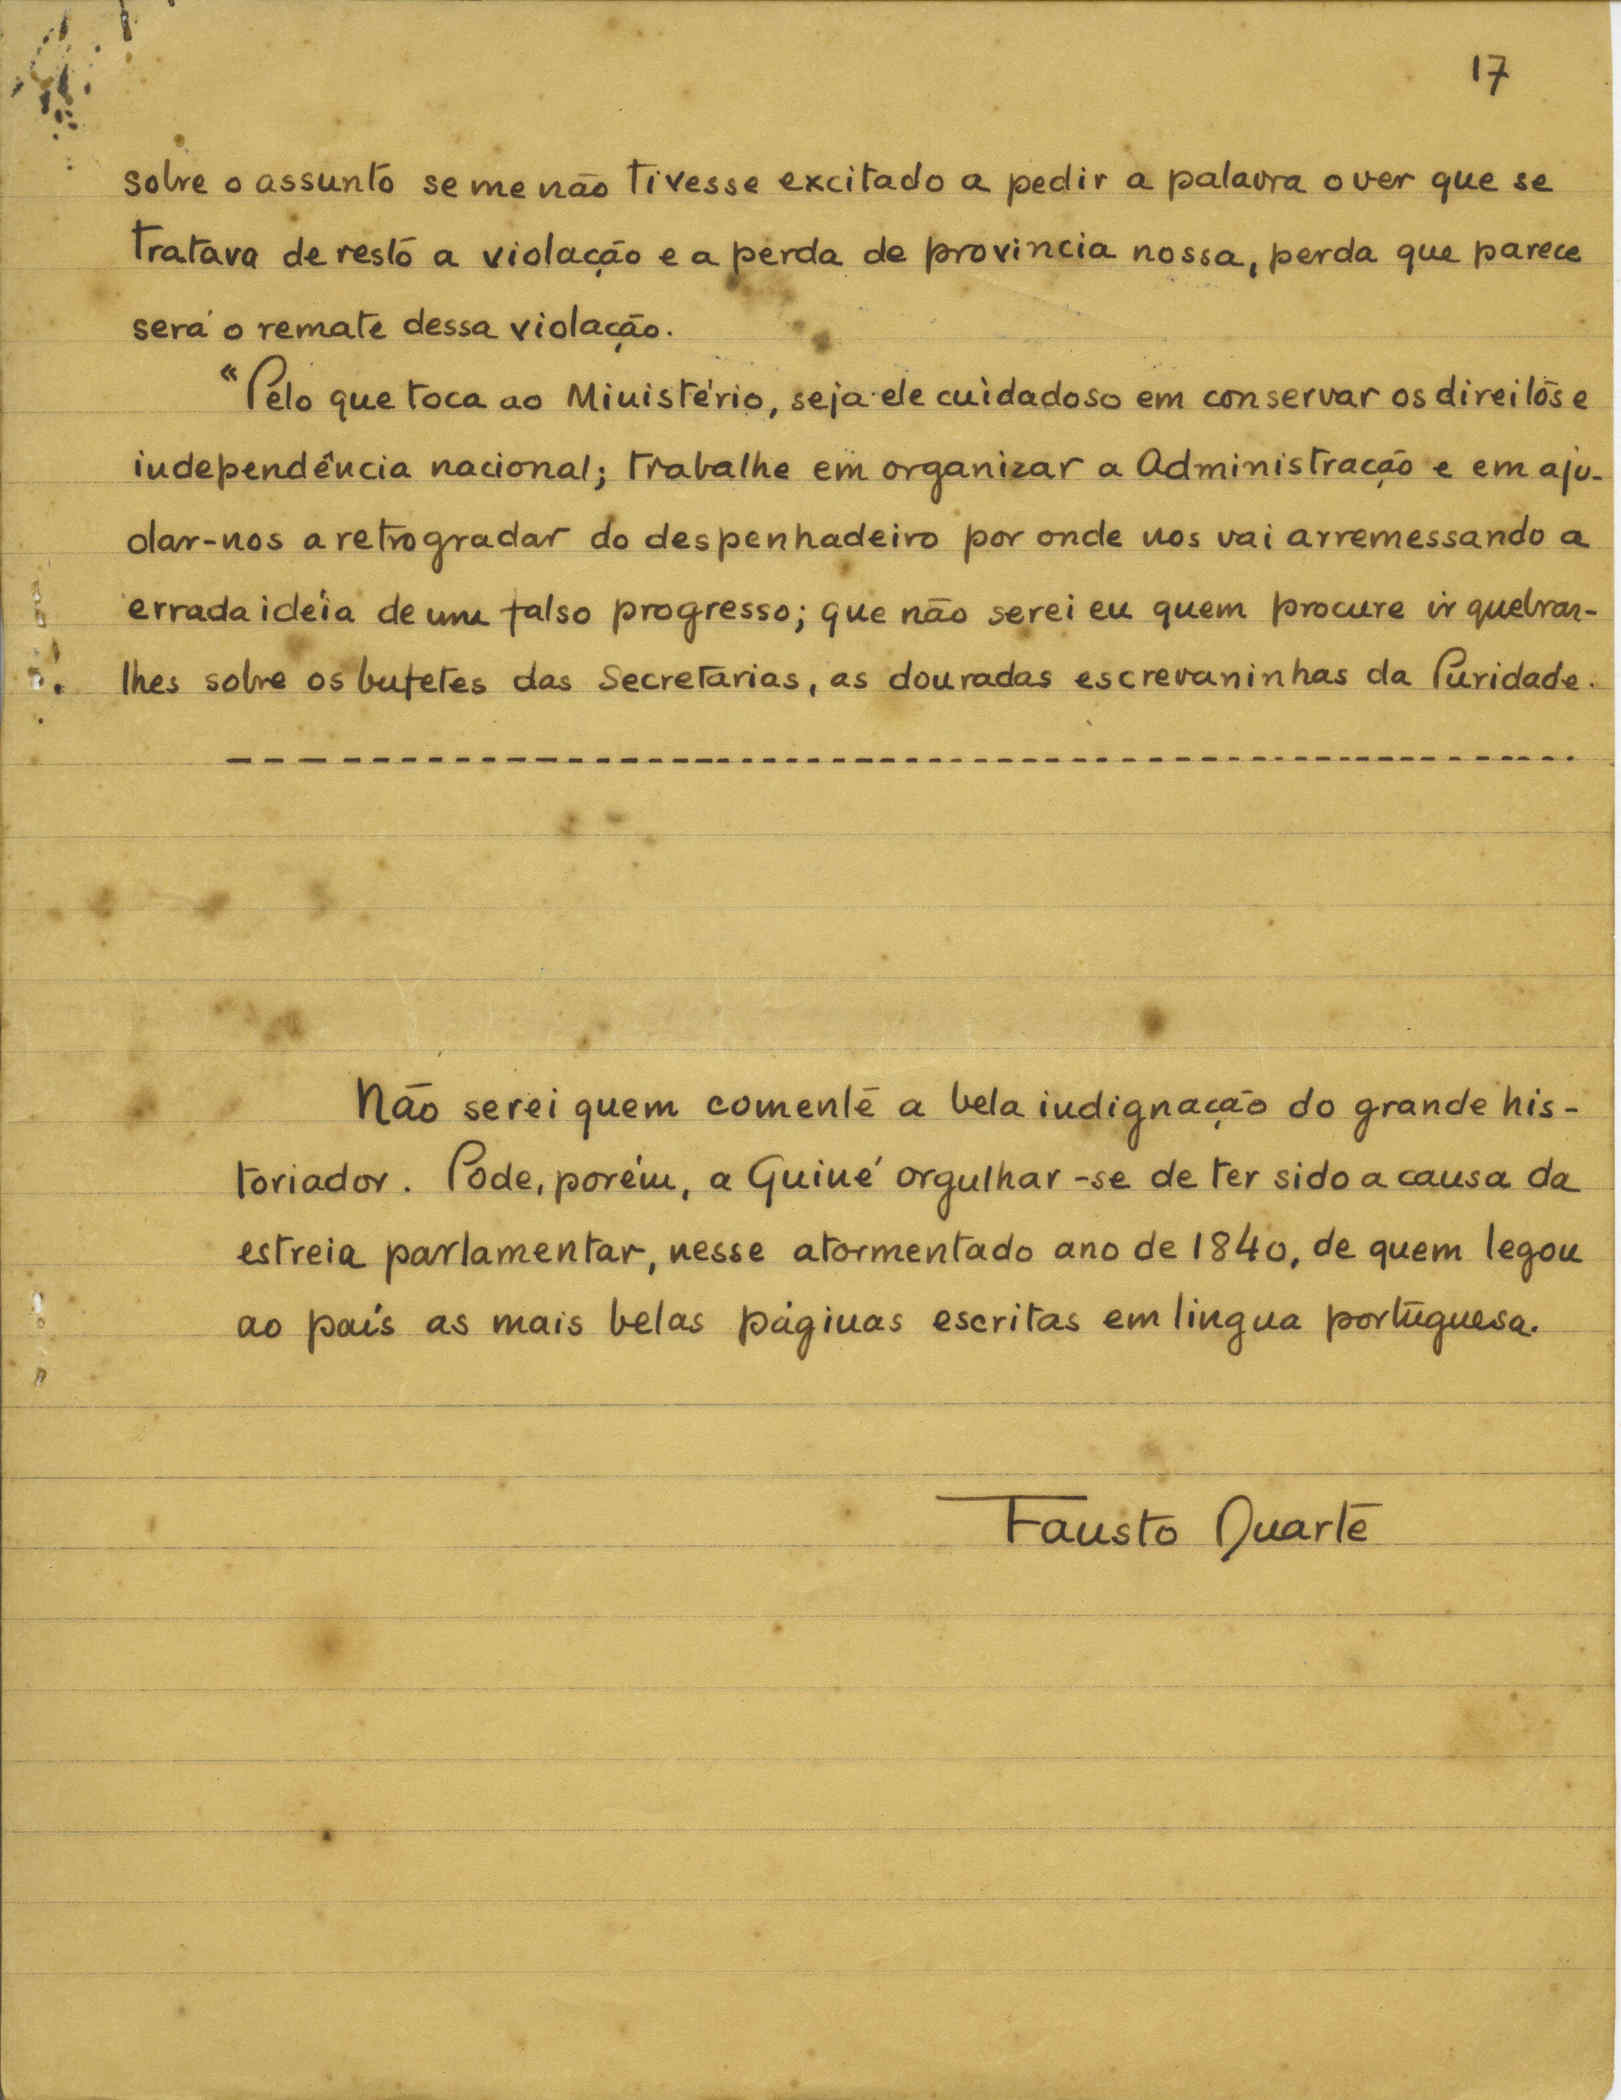 17
sobre o assunto se me não tivesse excitado a pedir a palavra o ver que se
tratava de resto a violação e a perda de provincia nossa, perda que parece
será o remate dessa violação.
"Pelo que toca ao Ministério, seja ele cuidadoso em conservar os direitos e
independência nacional; trabalhe em organizar a Administração e em aju-
dar-nos a retrogradar do despenhadeiro por onde nos vai arremessando a
errada ideia de um falso progresso; que não serei eu quem procure ir quebrar-
lhes sobre os bufetes das Secretarias, as douradas escrevaninhas da Puridade.
Não serei quem comente a bela indignação do grande his-
toriador. Pode, porém, a Guiné orgulhar-se de ter sido a causa da
estreia parlamentar, nesse atormentado ano de 1840, de quem legou
ao país as mais belas páginas escritas em lingua portuguesa.
Fausto Duarte